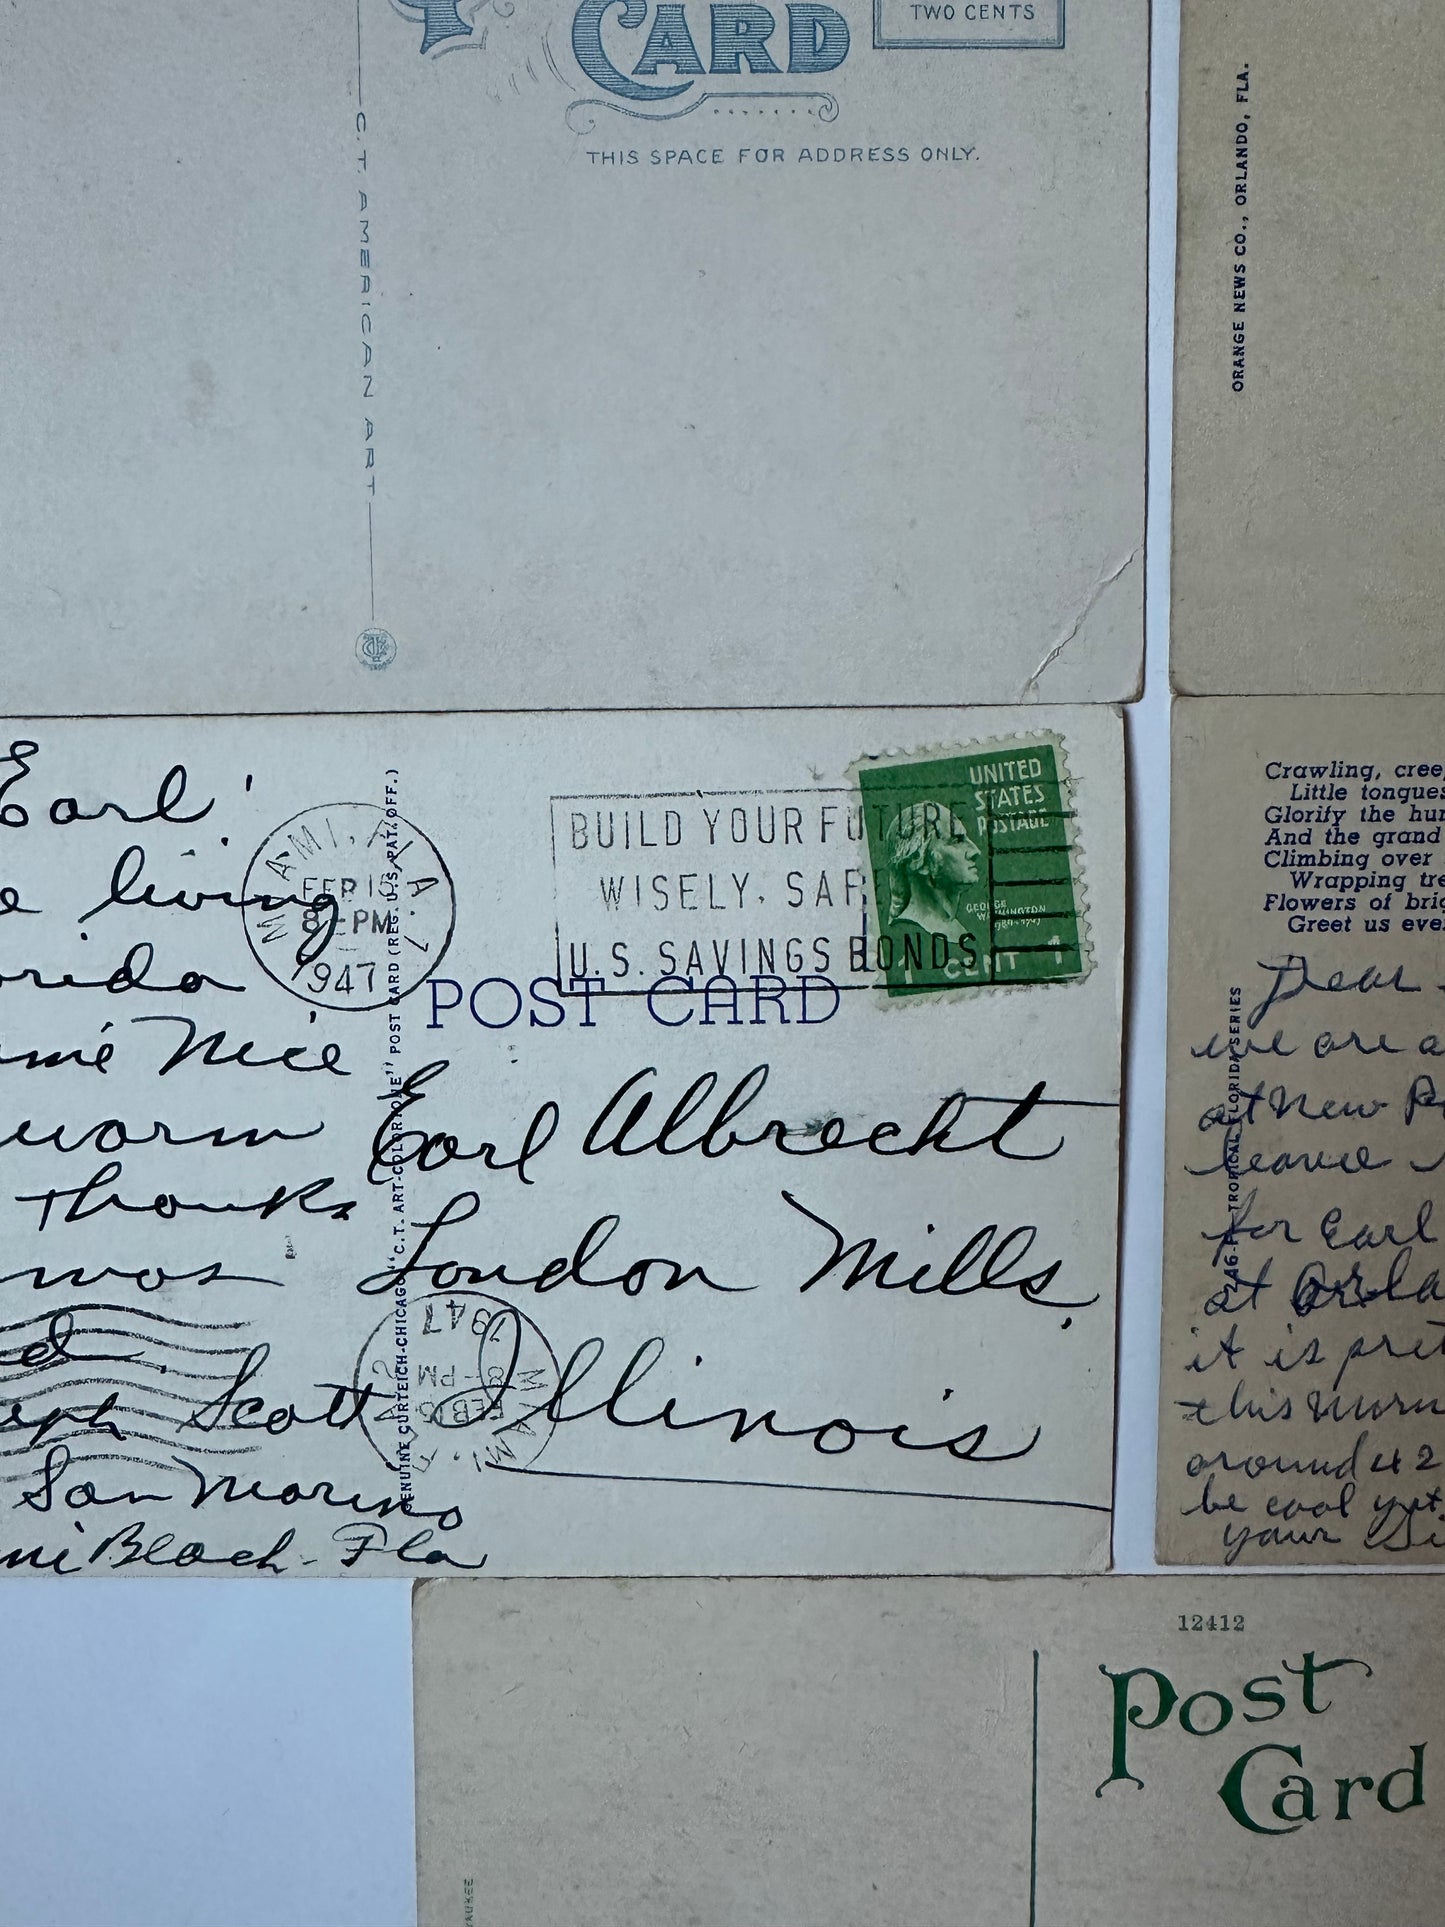 CARD
TWO CENTS
THIS SPACE FOR ADDRESS ONLY.
C.T. AMERICAN ART
ORANGE NEWS CO., ORLANDO, FLA.
Earl'
living
Florida
Nice
warm
Thanks
Scott
San Marino
Beach - Fla
MIAMI, FLA. 7
FEB 15
8 - PM
1947
BUILD YOUR FUTURE
WISELY, SAF
U.S. SAVINGS BONDS
UNITED
STATES
POSTAGE
GEORGE
WASHINGTON
1789-1797
1 CENT 1
POST CARD
GENUINE CURTEICH-CHICAGO "C.T. ART-COLORTONE" POST CARD (REG. U.S. PAT. OFF.)
Earl Albrecht
London Mills,
Illinois
MIAMI, FLA.
FEB 15
8 - PM
1947
Crawling, cree
Little tongues
Glorify the hu
And the grand
Climbing over
Wrapping tre
Flowers of brig
Greet us eve
TROPICAL FLORIDA SERIES
Dear
we are a
at New P
leave
for Earl
at Orla
it is pret
this morn
around 42
be cool yet
your Si
12412
Post
Card
AUKEE